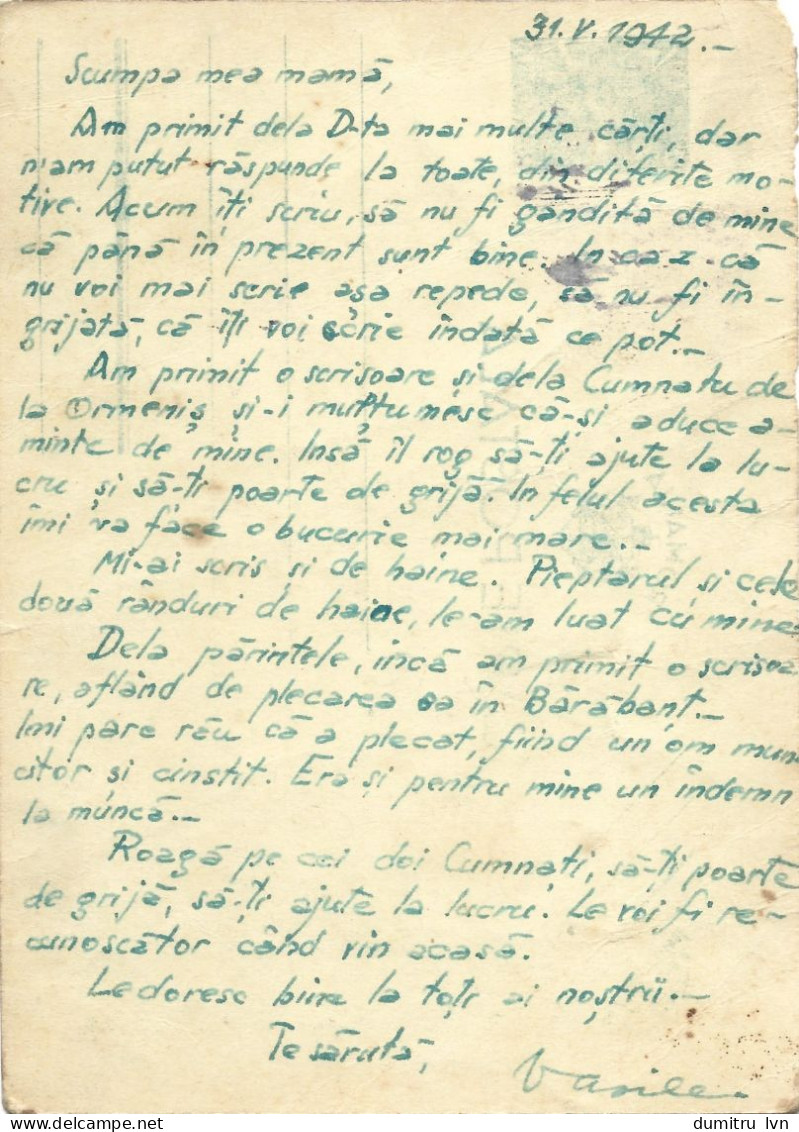 31.V.1942.-
Scumpa mea mamă,
Am primit dela D-ta mai multe cărți, dar
n'am putut răspunde la toate, din diferite mo-
tive. Acum îți scriu, să nu fi gândită de mine
că până în prezent sunt bine. In caz că
nu voi mai scrie așa repede, să nu fi în-
grijată, că îți voi scrie îndată ce pot.-
Am primit o scrisoare și dela Cumnatu de
la Ormeniș și-i mulțumesc că-și aduce a-
minte de mine. Însă îl rog să-ți ajute la lu-
cru și să-ți poarte de grijă. In felul acesta
îmi va face o bucurie mai mare.-
Mi-ai scris și de haine. Pieptarul și cele
două rânduri de haine, le-am luat cu mine
Dela părintele, încă am primit o scrisoa-
re, aflând de plecarea sa în Bărăbanț.-
Imi pare rău că a plecat, fiind un om mun-
citor și cinstit. Era și pentru mine un îndemn
la muncă.-
Roagă pe cei doi Cumnați, să-ți poarte
de grijă, să-ți ajute la lucru. Le voi fi re-
cunoscător când vin acasă.
Le doresc bine la toți ai noștrii.-
Te sărută,
Vasile
dumitru lvn